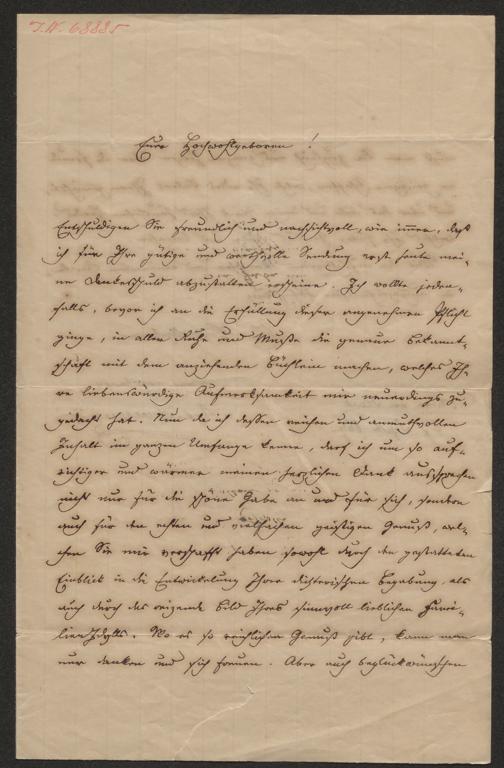 I.N. 68885
Euer Hochwohlgeboren!
Entschuldigen Sie freundlich und nachsichtvoll, wie immer, daß
ich für Ihre gütige und werthvolle Sendung erst heute mei-
ne Dankesschuld abzustatten erscheine. Ich wollte jeden-
falls, bevor ich an die Erfüllung dieser angenehmen Pflicht
ginge, in aller Ruhe und Muße die genaue Bekannt-
schaft mit dem anziehenden Büchlein machen, welches Ih-
re liebenswürdige Aufmerksamkeit mir neuerdings zu-
gedacht hat. Nun da ich dessen reichen und anmuthvollen
Inhalt im ganzen Umfange kenne, darf ich um so auf-
richtiger und wärmer meinen herzlichen Dank aussprechen
nicht nur für die schöne Gabe an und für sich, sondern
auch für den echten und vielfachen geistigen Genuß, wel-
chen Sie mir verschafft haben sowohl durch den gestatteten
Einblick in die Entwickelung Ihrer dichterischen Begabung, als
auch durch das reizende Bild Ihres sinnvoll lieblichen Fami-
lien Idylls. Wo es so reichlichen Genuß gibt, kann man
nur danken und sich freuen. Aber auch beglückwünschen